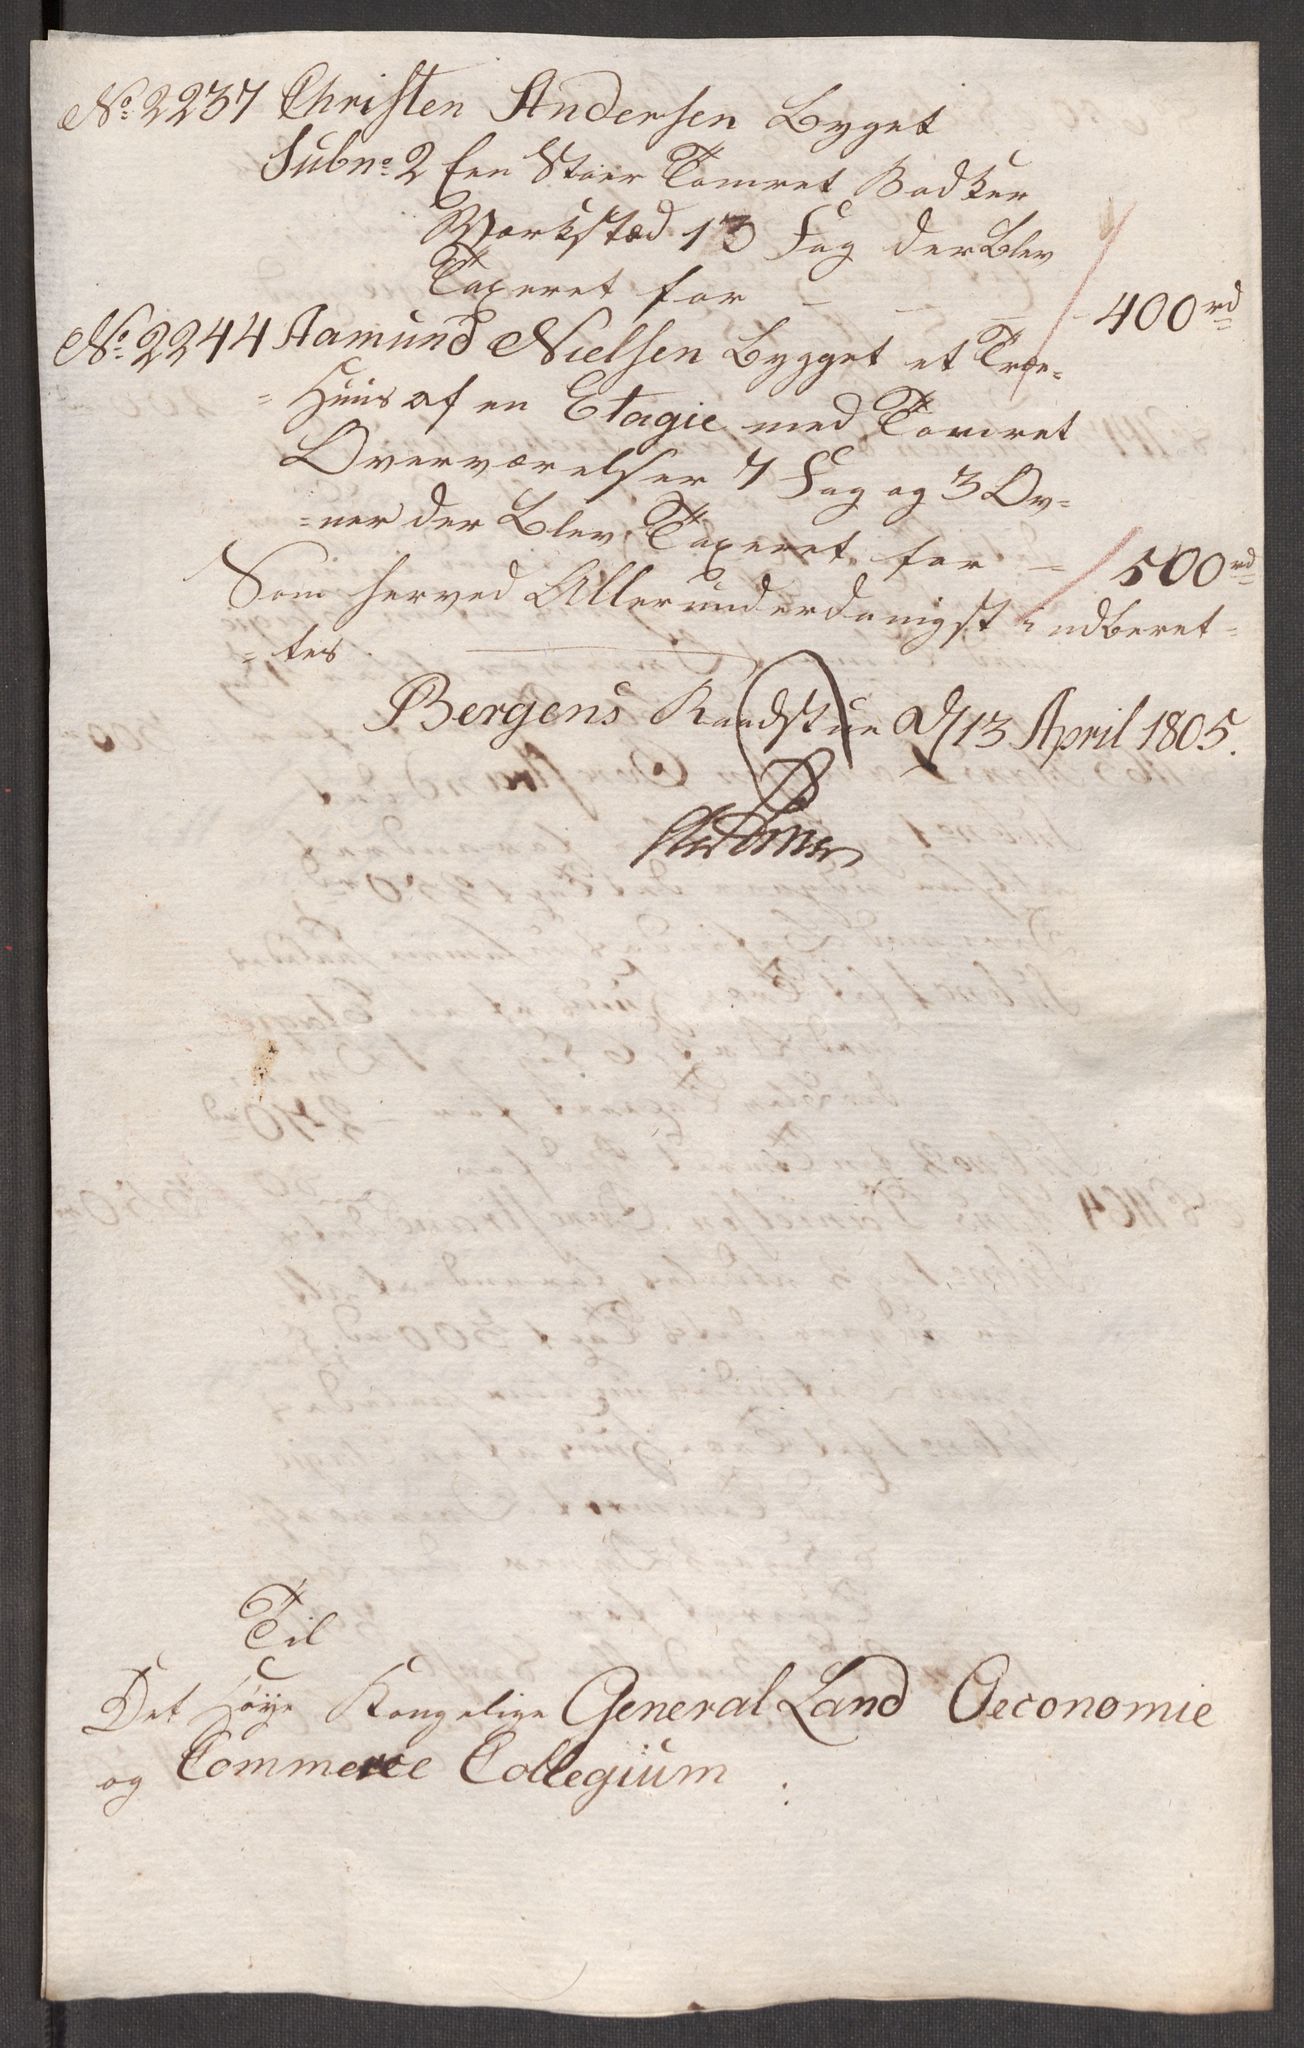 No. 2237 Christen Andersen Byget
Subno. 2 Een Stoer Tømret Bødker
Værkstæd 13 Fag der Blev
Taxeret for - - - 400 rd
No. 2244 Aamund Nielsen Bygget et Træe=
=Huus af en Etagie med Tømret
Overværelser 7 Fag og 3 Ov=
=ner der Blev Taxeret for - 500 rd
Som herved Allerunderdanigst indberet=
=tes.
Bergens Raadstue d 13 April 1805.
Til
Det Høye Kongelige General Land Oeconomie
og Commerce Collegium.